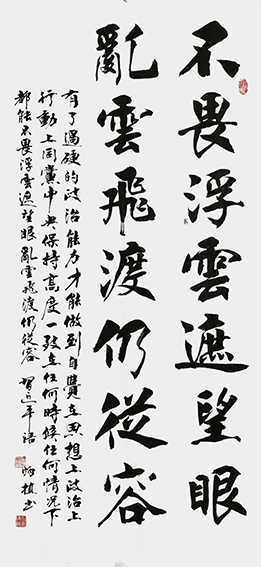 不畏浮雲遮望眼
亂雲飛渡仍從容
有了過硬的政治能力才能做到自覺在思想上政治上
行動上同黨中央保持高度一致在任何時候任何情況下
都能不畏浮雲遮望眼亂雲飛渡仍從容 習近平語 書